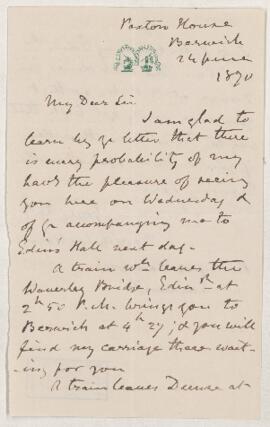 Paxton House
Berwick
24 June
1870
My Dear Sir
I am glad to
learn by yr letter that there
is every probability of my
havg the pleasure of seeing
you here on Wednesday &
of yr accompanying me to
Edin's Hall next day-
A train wh leaves the
Waverley Bridge, Edinr at
2h 50 P.M. brings you to
Berwick at 4h 27; & you will
find my carriage there wait-
-ing for you
A train leaves Dunse at